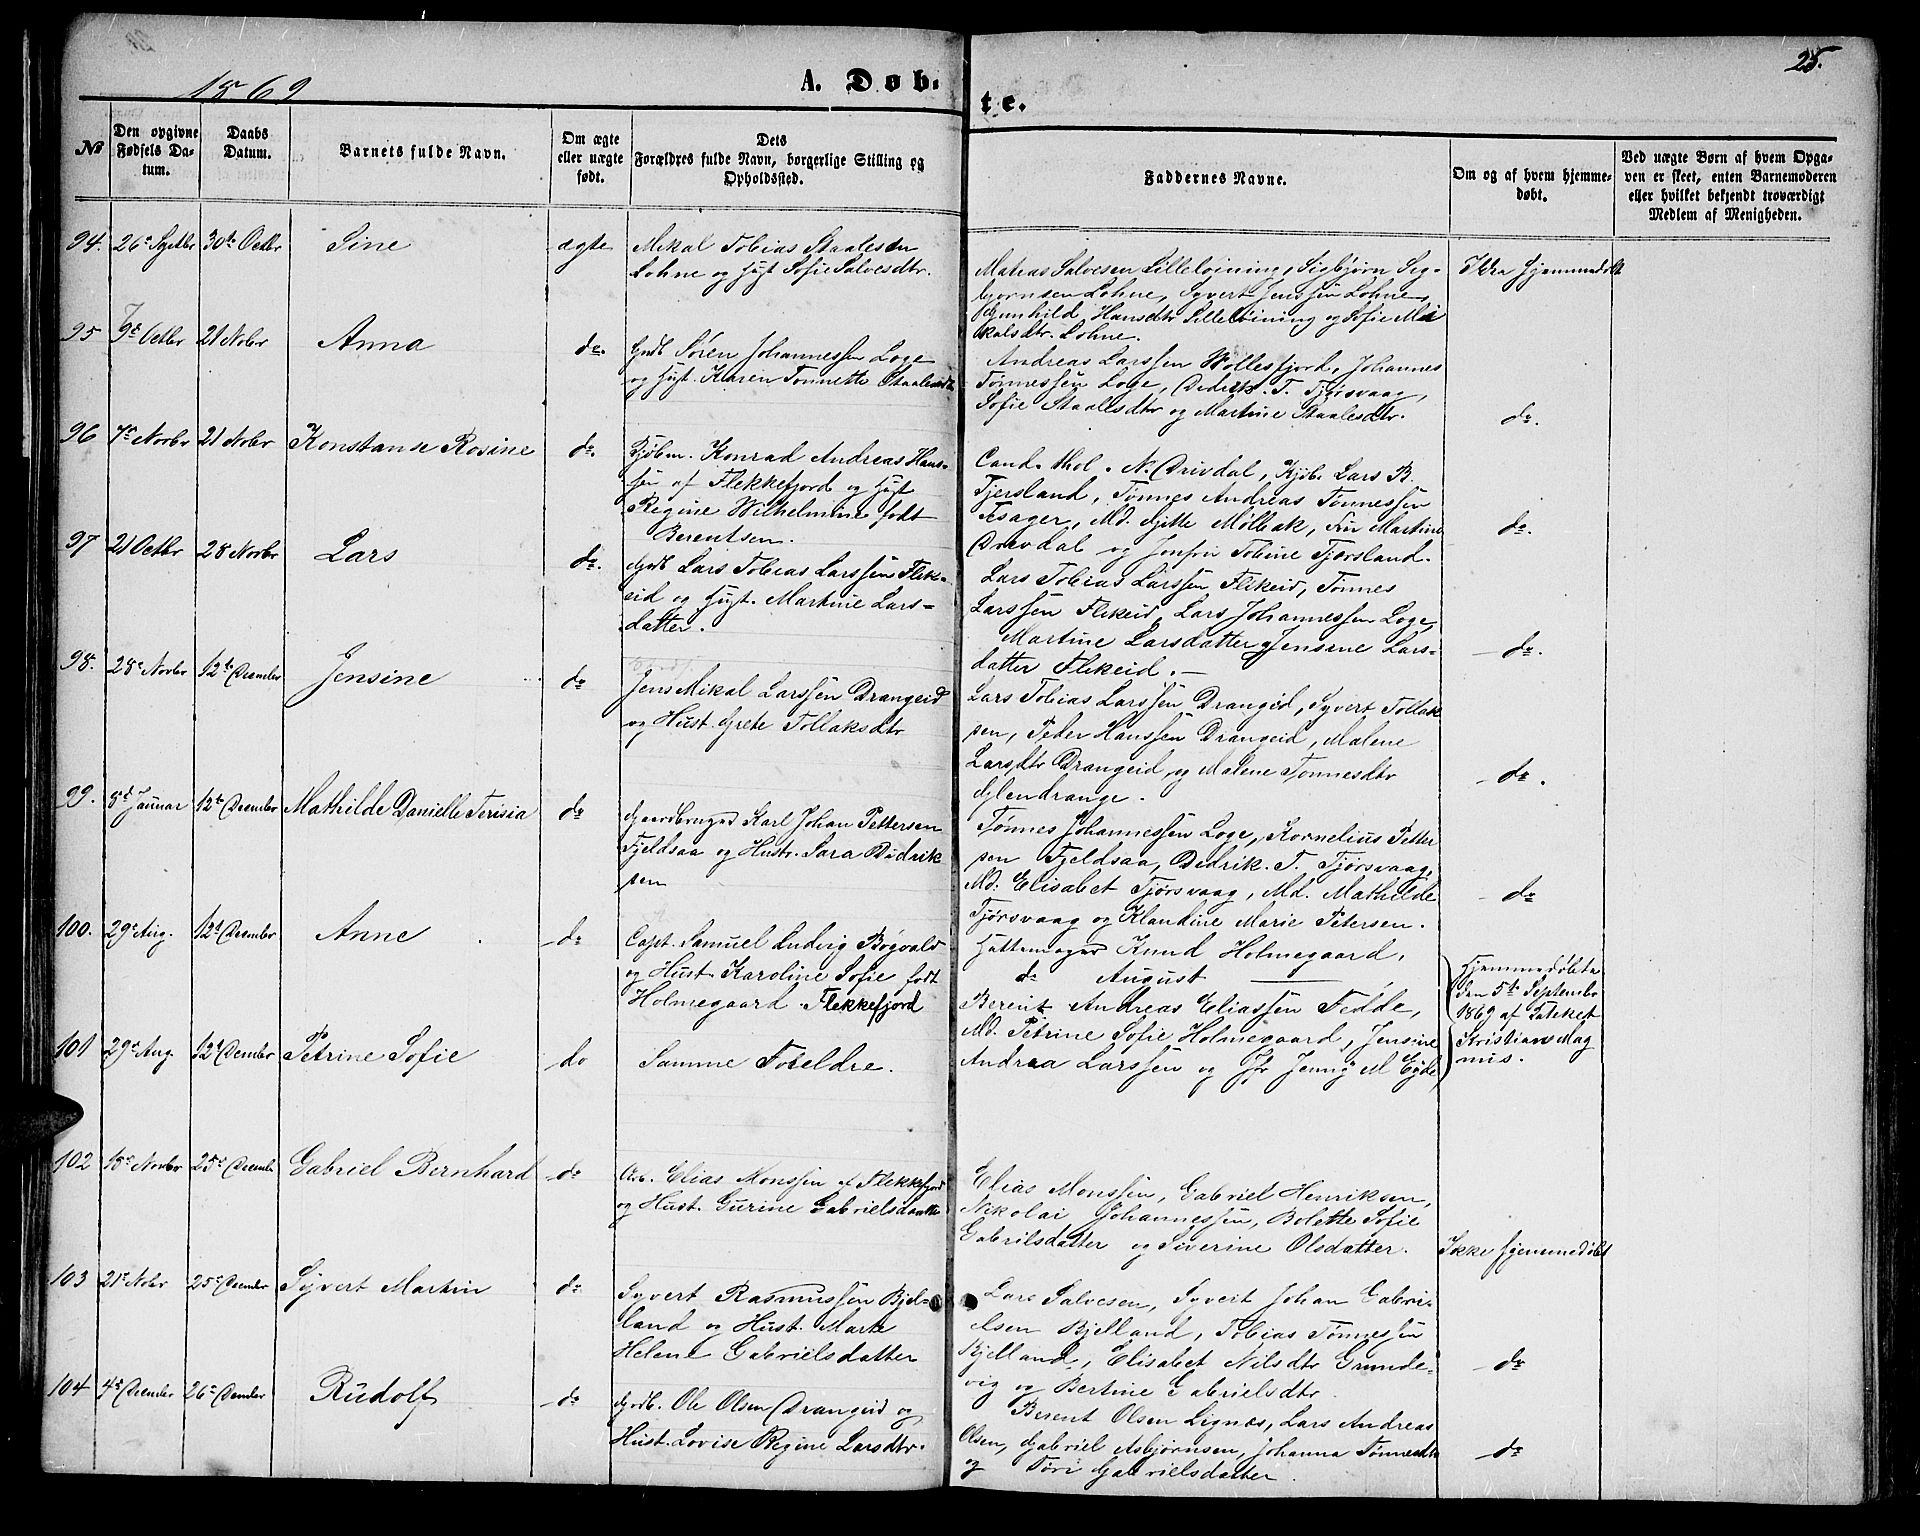 1869
A. Døb-
te.
25.
No
Den opgivne
Fødsels Da-
tum.
Daabs
Datum.
Barnets fulde Navn.
Om ægte
eller uægte
født.
Dets
Forældres fulde Navn, borgerlige Stilling og
Opholdssted.
Faddernes Navne.
Om og af hvem hjemme-
døbt.
Ved uægte Børn af hvem Opga-
ven er skeet, enten Barnemoderen
eller hvilket bekjendt troværdigt
Medlem af Menigheden.
94. 26 Septbr 30te Octbr Sine ægte
Mikal Tobias Staalesen
Lohne og Hust Sofie Salvesdtr.
Matias Salvesen Lilleløining, Sigbjørn Sig-
bjørnsen Lohne, Syvert Jenssen Lohne,
Gunhild Hansdtr Lilleløining og Sofie Mi
kalsdtr. Lohne.
Ikke hjemmedøbt
95 9d Octbr 21 Nobr Anna do.
Gdb Søren Johannessen Loge
og Hust. Karen Tonnette Staalesdtr
Andreas Larssen Wollesfjord, Johannes
Tønnessen Loge, Didrik T. Tjørsvaag,
Sofie Staalesdtr og Martine Staalesdtr.
do.
96 7de Novbr 21 Nobr Konstanse Rosine do.
Kjøbm. Konrad Andreas Hans-
sen af Flekkefjord og Hust
Regine Wilhelmine født
Berentsen.
Cand. thol. N. Drivdal, Kjøb. Lars B.
Tjersland, Tønnes Andreas Tønnessen
Tesager, Md. Gitte Mølbak, Fru Martine
Drivdal og Jomfru Tobine Tjersland.
do.
97 21 Octbr 28 Novbr Lars do.
Gdb Lars Tobias Larssen Flik-
eid og Hust. Martine Lars-
datter.
Lars Tobias Larssen Flikeid, Tønnes
Larssen Flikeid, Lars Johannessen Loge,
Martine Larsdatter og Jensine Lars-
datter Flikeid. —
do.
98. 28 Novbr 12te December Jensine do
Jens Mikal Larssen Drangeid
og Hust Grete Tollaksdtr
Lars Tobias Larssen Drangeid, Syvert Tollak
sen, Peder Hanssen Drangeid, Malene
Larsdtr Drangeid og Malene Tønnesdtr
Glendrange.
do.
99. 5d Januar 12te December Mathilde Danielle Terisia do
Gaardbruger Karl Johan Pettersen
Fjeldsaa og Hustr. Sara Didrik
sen
Tønnes Johannessen Loge, Kornelius Petter
sen Fjeldsaa, Didrik. T. Tjørsvaag,
Md. Elisabet Tjørsvaag, Md. Mathilde
Tjørsvaag og Klaudine Marie Petersen.
do
100. 29 Aug. 12te December Anne do
Capt. Samuel Ludvig Bøgvald
og Hust Karoline Sofie født
Holmegaard Flekkefjord
Hattemager Knud Holmegaard,
do August ———,
Berent Andreas Eliassen Fedde,
Md. Petrine Sofie Holmegaard, Jensine
Andrea Larssen og Jfr Jenny M Eyde
Hjemmedøbte
den 5te Septembr
1869 af
Kristians Mag
nus.
101 29 Aug. 12te December Petrine Sofie do
Samme Foreldre.
102 18 Novbr 25 Decembr Gabriel Bernhard do
Arb. Elias Monssen af Flekkefjord
og Hust. Gurine Gabrielsdatter
Elias Monssen, Gabriel Henriksen,
Nikolai Johannessen, Bolette Sofie
Gabrilsdatter og Siverine Olsdatter.
Ikke hjemmedøbt
103 21 Nobr 25 December Syvert Martin do
Syvert Rasmussen Bjel-
land og Hust. Marte
Helene Gabrielsdatter
Lars Salvesen, Syvert Johan Gabri-
elsen Bjelland, Tobias Tønnessen
Bjelland, Elisabet Nilsdtr Grunde-
vig og Bertine Gabrielsdtr.
do
104 4de December 26 December Rudolf do
Gdb. Ole Olsen Drangeid og
Hust. Lovise Regine Larsdtr.
Berent Olsen Lignæs, Lars Andreas
Olsen, Gabriel Asbjørnsen, Johanna Tønnesdtr
og Tøri Gabrielsdatter.
do